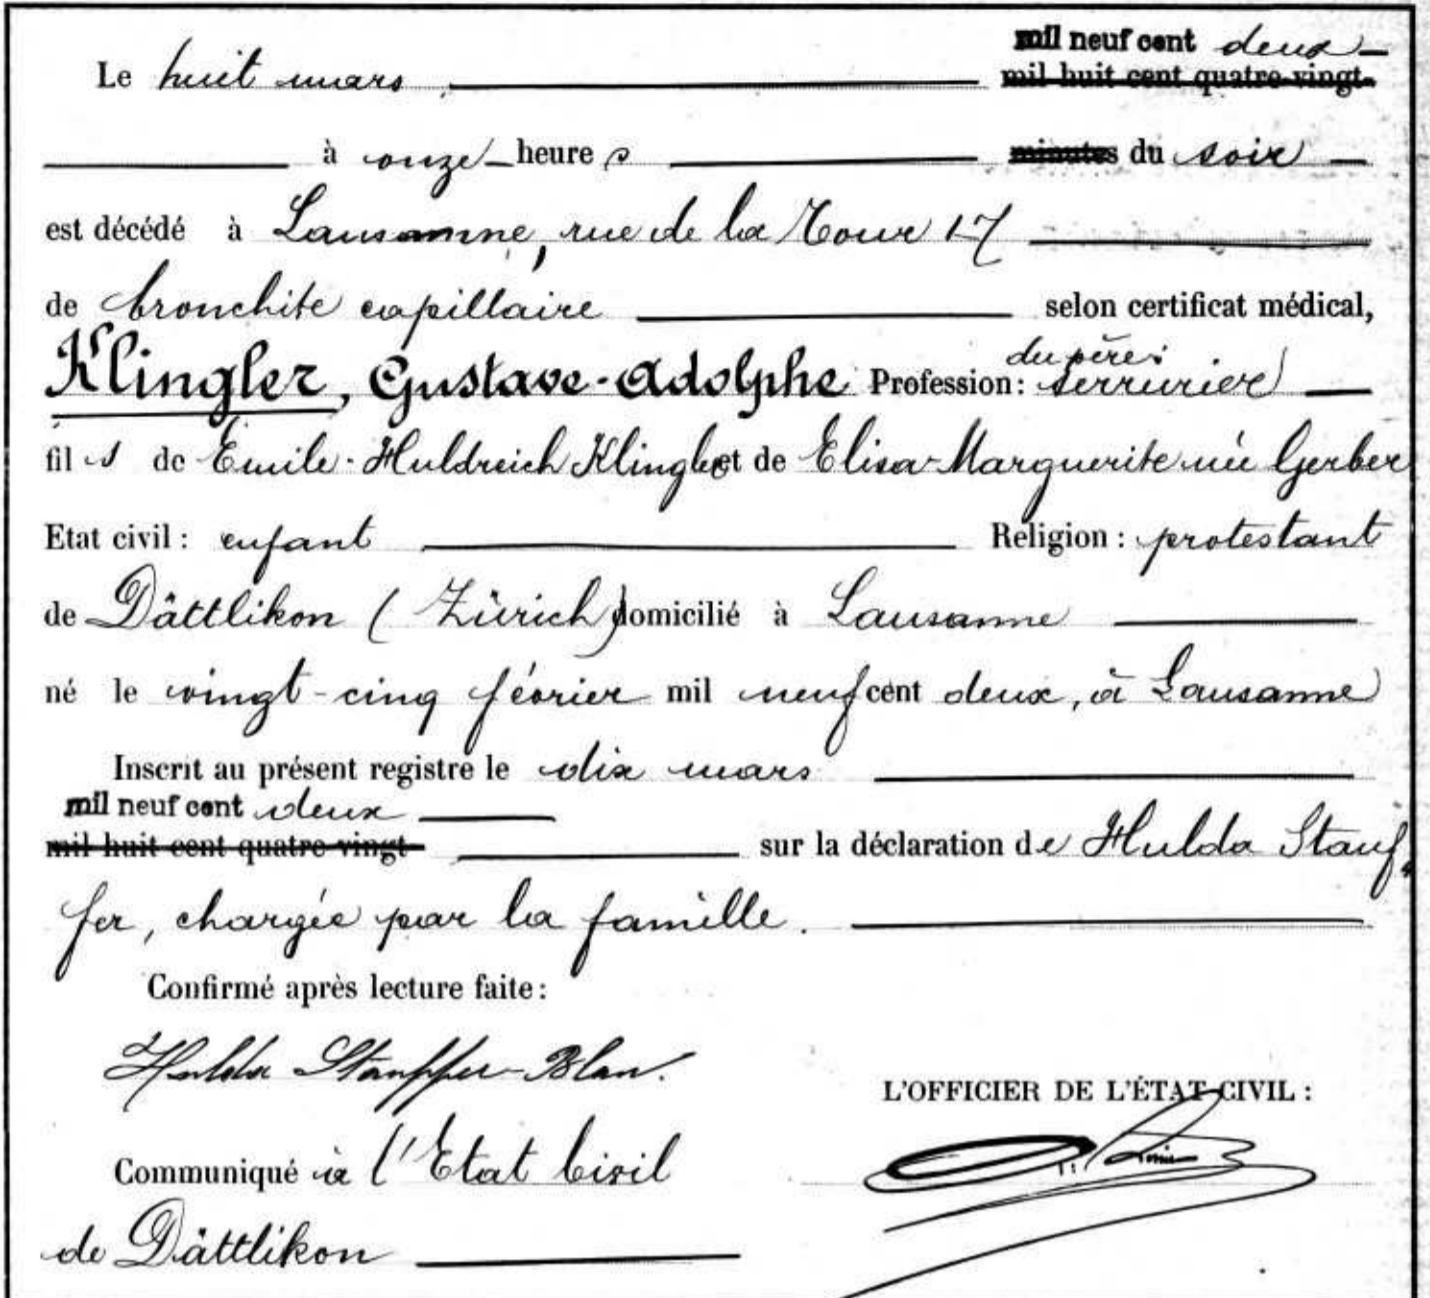 mil neuf cent deux
Le huit mars mil huit cent quatre-vingt-
à onze heures minutes du soir
est décédé à Lausanne, rue de la Tour 17
de bronchite capillaire selon certificat médical,
du père:
Klingler, Gustave-Adolphe Profession: serrurier
fils de Emile-Huldreich Klingler et de Elisa-Marguerite née Gerber
Etat civil: enfant Religion: protestant
de Dättlikon (Zürich) domicilié à Lausanne
né le vingt-cinq février mil neuf cent deux, à Lausanne
Inscrit au présent registre le dix mars
mil neuf cent deux
mil huit cent quatre-vingt- sur la déclaration de Hulda Stauf-
fer, chargée par la famille.
Confirmé après lecture faite:
Hulda Stauffer-Blan.
L'OFFICIER DE L'ÉTAT CIVIL:
Communiqué à l'Etat Civil
de Dättlikon